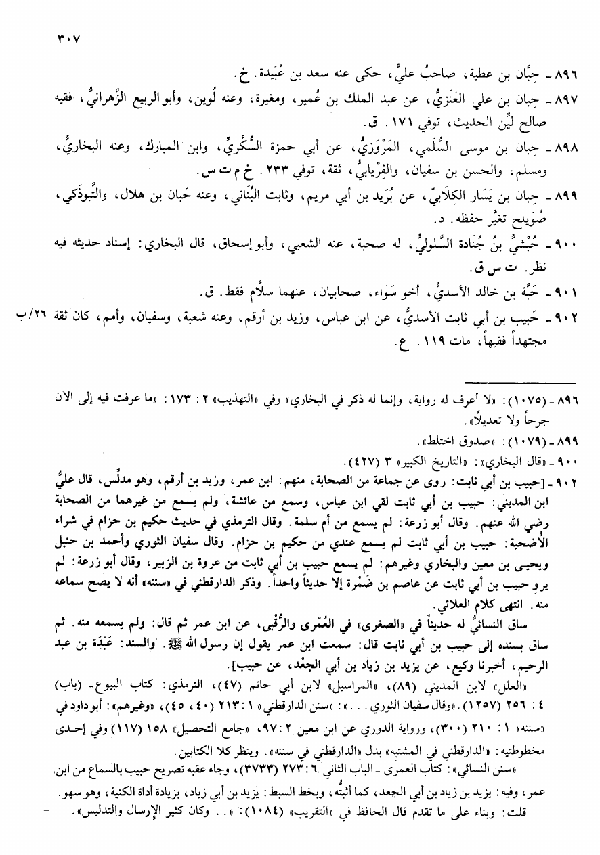 ٣٠٧
٨٩٦ ـ حِبَّان بن عطية، صاحبُ عليٍّ، حكى عنه سعد بن عُبَيدة. خ.
٨٩٧ ـ حِبان بن علي العَنَزيُّ، عن عبد الملك بن عُمير، ومغيرة، وعنه لُوين، وأبو الربيع الزَّهرانيُّ، فقيه
صالح ليِّن الحديث، توفي ١٧١. ق.
٨٩٨ ـ حِبان بن موسى السُّلَمي، المَرْوَزيُّ، عن أبي حمزة السُّكَّريِّ، وابن المبارك، وعنه البخاريُّ،
ومسلم، والحسن بن سفيان، والفِرْيابيُّ، ثقة، توفي ٢٣٣. خ م ت س.
٨٩٩ ـ حِبان بن يَسَار الكِلَابيُّ، عن بُرَيد بن أبي مريم، وثابت البُنَاني، وعنه حَبان بن هلال، والتَّبوذكي،
صُوَيلح تغيَّر حفظه. د.
٩٠٠ ـ حُبْشيُّ بنُ جُنَادة السَّلوليُّ، له صحبة، عنه الشعبي، وأبو إسحاق، قال البخاري: إسناد حديثه فيه
نظر. ت س ق.
٩٠١ ـ حَبَّة بن خالد الأسديُّ، أخو سَوَاء، صحابيان، عنهما سلَّام فقط. ق.
٩٠٢ ـ حَبيب بن أبي ثابت الأسديُّ، عن ابن عباس، وزيد بن أرقم، وعنه شعبة، وسفيان، وأمم، كان ثقة ٢٦/ب
مجتهداً فقيهاً، مات ١١٩. ع.
٨٩٦ ـ (١٠٧٥): «لا أعرف له رواية، وإنما له ذكر في البخاري» وفي «التهذيب» ٢: ١٧٣: «ما عرفت فيه إلى الآن
جرحاً ولا تعديلاً».
٨٩٩ ـ (١٠٧٩): «صدوق اختلط».
٩٠٠ ـ «قال البخاري»: «التاريخ الكبير» ٣ (٤٢٧).
٩٠٢ ـ [حبيب بن أبي ثابت: روى عن جماعة من الصحابة، منهم: ابن عمر، وزيد بن أرقم، وهو مدلِّس، قال عليُّ
ابن المديني: حبيب بن أبي ثابت لقي ابن عباس، وسمع من عائشة، ولم يسمع من غيرهما من الصحابة
رضي الله عنهم. وقال أبو زرعة: لم يسمع من أم سلمة. وقال الترمذي في حديث حكيم بن حزام في شراء
الأضحية: حبيب بن أبي ثابت لم يسمع عندي من حكيم بن حزام. وقال سفيان الثوري وأحمد بن حنبل
ويحيى بن معين والبخاري وغيرهم: لم يسمع حبيب بن أبي ثابت من عروة بن الزبير، وقال أبو زرعة: لم
يرو حبيب بن أبي ثابت عن عاصم بن ضَمْرة إلا حديثاً واحداً. وذكر الدارقطني في «سننه» أنه لا يصح سماعه
منه. انتهى كلام العلائي.
ساق النسائيُّ له حديثاً في «الصغرى» في العُمْرى والرُّقْبى، عن ابن عمر ثم قال: ولم يسمعه منه. ثم
ساق بسنده إلى حبيب بن أبي ثابت قال: سمعت ابن عمر يقول إن رسول الله ﷺ. والسند: عَبْدَة بن عبد
الرحيم، أخبرنا وكيع، عن يزيد بن زياد بن أبي الجَعْد، عن حبيب].
«العلل» لابن المديني (٨٩)، «المراسيل» لابن أبي حاتم (٤٧)، الترمذي: كتاب البيوع ـ (باب)
٤: ٢٥٦ (١٢٥٧). «وقال سفيان الثوري ...»: «سنن الدارقطني» ١: ٢١٣ (٤٠، ٤٥)، «وغيرهم»: أبو داود في
«سننه» ١: ٢١٠ (٣٠٠)، ورواية الدوري عن ابن معين ٢: ٩٧، «جامع التحصيل» ١٥٨ (١١٧) وفي إحدى
مخطوطتيه: «الدارقطني في المشتبه» بدل «الدارقطني في سننه». وينظر كلا الكتابين.
«سنن النسائي»: كتاب العمرى ـ الباب الثاني ٦: ٢٧٣ (٣٧٣٣)، وجاء عقبه تصريح حبيب بالسماع من ابن
عمر، وفيه: يزيد بن زياد بن أبي الجعد، كما أثبتُّه، وبخط السبط: يزيد بن أبي زياد، بزيادة أداة الكنية، وهو سهو.
قلت: وبناء على ما تقدم قال الحافظ في «التقريب» (١٠٨٤): «.. وكان كثير الإرسال والتدليس». ـ